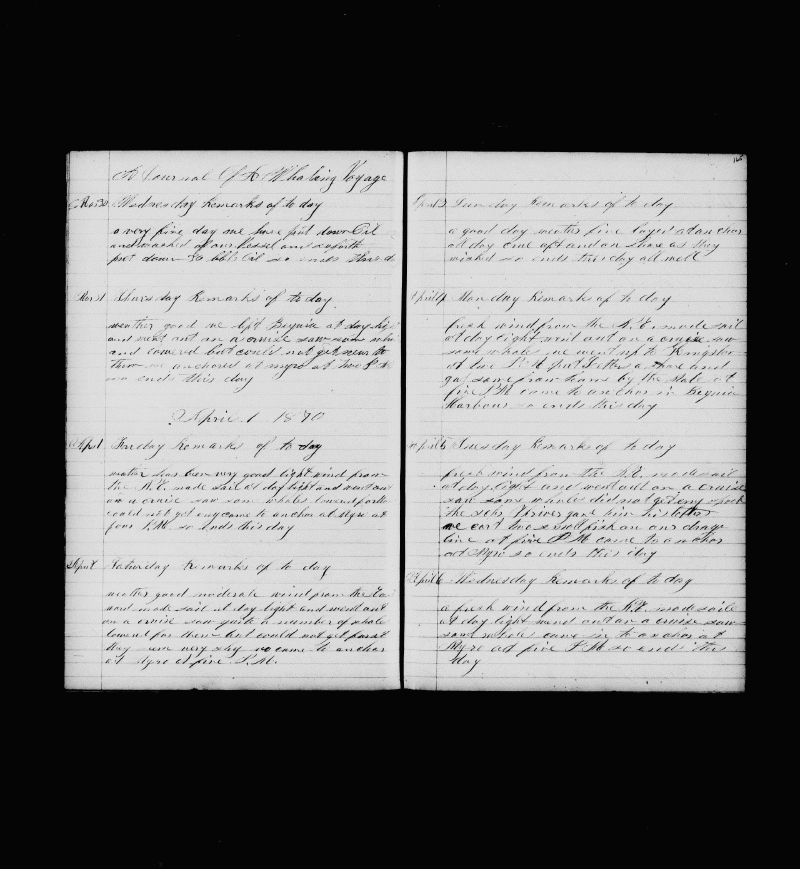 A Journal Of A Whaling Voyage
Mar 30 Wednesday Remarks of to day
a very fine day we have put down Oil
and washed of our vessel and so forth
put down bbls Oil so ends this d
Mar 31 Thursday Remarks of to day
weather good we left Bequia at day ligh
and went out on a cruise saw some whal
and lowered but could not get near to
them we anchored at myro at two P M
so ends this day
April 1 1870
Apr 1 Friday Remarks of to day
weather has been very good light wind from
the N.E. made sail at day light and went out
on a cruise saw som whales lowered for th
could not get eny came to anchor at Myro at
four P.M. so ends this day
April 2 Saturday Remarks of to day
weather good moderate wind from the Ea
ward made sail at day light and went out
on a cruise saw quite a number of whale
lowered for them but could not get fast
they were very shy so came to anchor
at Myro at five P.M.
April 3 Sunday Remarks of to day
a good day weather fine layed at anchor
all day crue aft and on shore as they
wished so ends this day all well
April 4 Monday Remarks of to day
fresh wind from the N.E. made sail
at day light went out on a cruise saw
some whale we went up to Kingston
at two P.M. put Letter a shore and
got some from home by the
five P.M. came to anchor in Bequia
Harbour so ends this day
April 5 Tuesday Remarks of to day
fresh wind from the N.E. made sail
at day light and went out on a cruise
saw some whale did not get eny spoke
the Schr gave him his letters
we cort two small fish on our drage
line at five P.M. came to anchor
at Myro so ends this day
April 6 Wednesday Remarks of to day
a fresh wind from the N.E. made saile
at day light went out on a cruise saw
some whale came in to anchor at
Myro at five P.M. so ends this
day